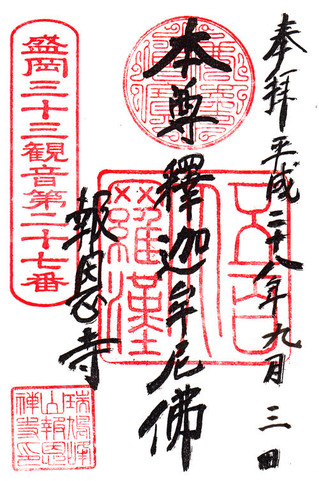 奉拜 平成二十八年九月三日
本尊釋迦牟尼佛
報恩寺
盛岡三十三観音第二十七番
五百羅漢